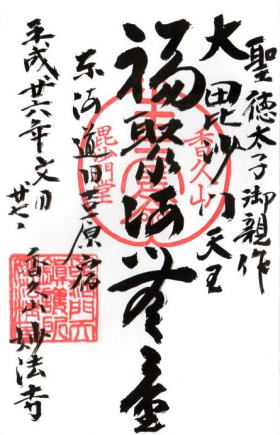 聖徳太子御親作
大毘沙門天王
福聚海無量
東海道旧吉原宿
平成廿六年文月
廿七日
香久山妙法寺
香久山
毘沙門堂